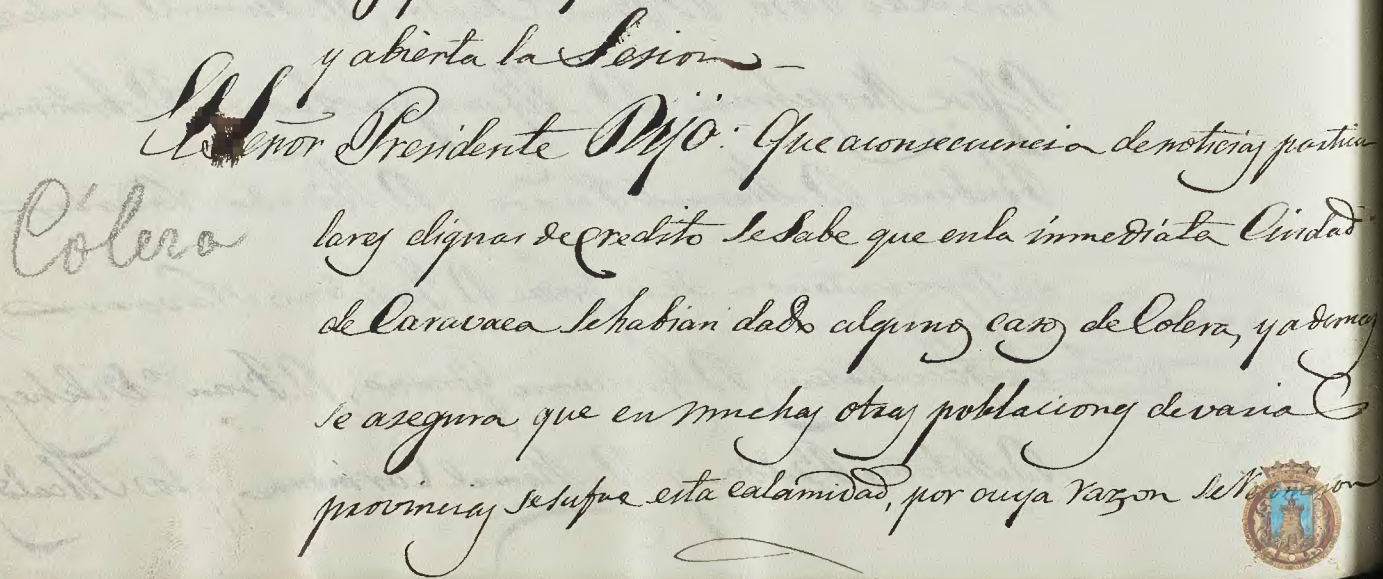 y abierta la Sesion
El Señor Presidente Dijo: Que aconsecuencia de noticias particu
Cólera
lares dignas de credito se Sabe que en la inmediata Ciudad
de Caravaca se habian dado algunos casos de Colera, y ademas
se asegura que en muchas otras poblaciones de varias
provincias se sufre esta calamidad, por cuya razon se